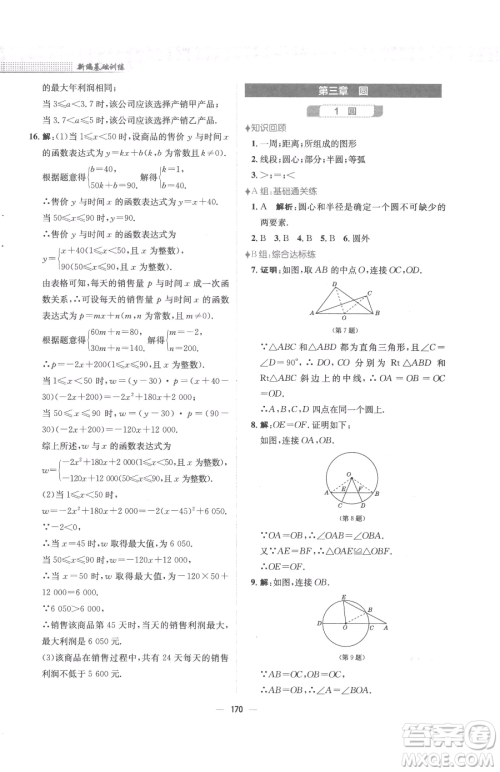 新编基础训练
的最大年利润相同;
当 3<a<3.7 时,该公司应该选择产销甲产品;
当 3.7<a≤5 时,该公司应该选择产销乙产品.
16. 解:(1)当 1≤x<50 时,设商品的售价 y 与时间 x
的函数表达式为 y=kx+b(k,b 为常数且 k≠0),
根据题意得{b=40, 50k+b=90, 解得{k=1, b=40.
∴售价 y 与时间 x 的函数表达式为 y=x+40.
当 50≤x≤90 时,y=90.
∴售价 y 与时间 x 的函数表达式为
y={x+40(1≤x<50), 90(50≤x≤90).
由表格可知,每天的销售量 p 与时间 x 成一次函
数关系,∴可设每天的销售量 p 与时间 x 的函数
表达式为 p=mx+n(m,n 为常数,且 m≠0),
根据题意得{60m+n=80, 30m+n=140, 解得{m=-2, n=200.
∴p=-2x+200(0≤x≤90,且 x 为整数).
当 1≤x<50 时,w=(y-30)·p=(x+40-
30)(-2x+200)=-2x²+180x+2 000;
当 50≤x≤90 时,w=(y-30)·p=(90-
30)(-2x+200)=-120x+12 000.
综上所述,w 与 x 的函数表达式为
w={-2x²+180x+2 000(1≤x<50), -120x+12 000(50≤x≤90).
(2)当 1≤x<50 时,
w=-2x²+180x+2 000=-2(x-45)²+6 050.
∵-2<0,
∴当 x=45 时,w 取得最大值,为 6 050.
当 50≤x≤90 时,w=-120x+12 000.
∵-120<0,∴w 随 x 的增大而减小.
∴当 x=50 时,w 取得最大值,最大值为
6 000.
∵6 050>6 000,
∴销售该商品第 45 天时,每天的销售利润最大,
最大利润为 6 050 元.
(3)该商品在销售过程中,共有 24 天每天的销售
利润不低于 5 600 元.
第三章 圆
1 圆
知识回顾
1. 一周;距离;所组成的图形
2. 线段;直径;弧;半圆;等弧
3. >;=;<
A 组:基础通关练
1. A 解析:圆心和半径是确定一个圆不可缺少的
两要素.
2. B 3. B 4. B 5. B 6. 圆外
B 组:综合达标练
7. 证明:如图,取 AB 的中点 O,连接
OC,OD.
D
C
A
O
B
(第 7 题)
∵△ABC 和△ABD 都为直角三角形,且∠C=
∠D=90°,∴DO,CO 分别为 Rt△ABD 和
Rt△ABC 斜边上的中线.∴OA=OB=OC=
OD.∴A,B,C,D 四点在同一个圆上.
8. 解:OE=OF.证明如下:
如图,连接 OA,OB.
O
A
E
F
B
(第 8 题)
∵OA=OB,∴∠OAB=∠OBA.
又∵AE=BF,∴△OAE≌△OBF(SAS).
∴OE=OF.
9. 解:如图,连接 OB.
E
B
D
O
C
A
(第 9 题)
∵AB=OC,OC=OB,∴AB=OB.
∴∠A=∠BOC.
170